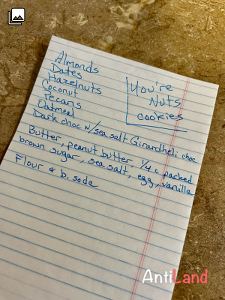 Almonds
Dates
Hazelnuts
Coconut
Pecans
Oatmeal
Dark choc w/sea salt Girardheli choc
You're
Nuts
cookies
Butter, peanut butter, 1/4 c packed
brown sugar, sea salt, egg, vanilla
Flour & b. soda
AntiLand